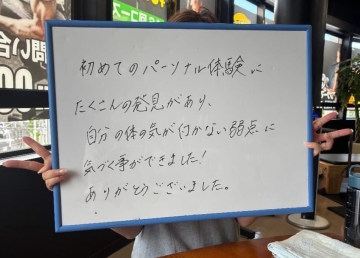 初めてのパーソナル体験に
たくさんの発見があり、
自分の体の気が付かない弱点に
気づく事ができました!
ありがとうございました。